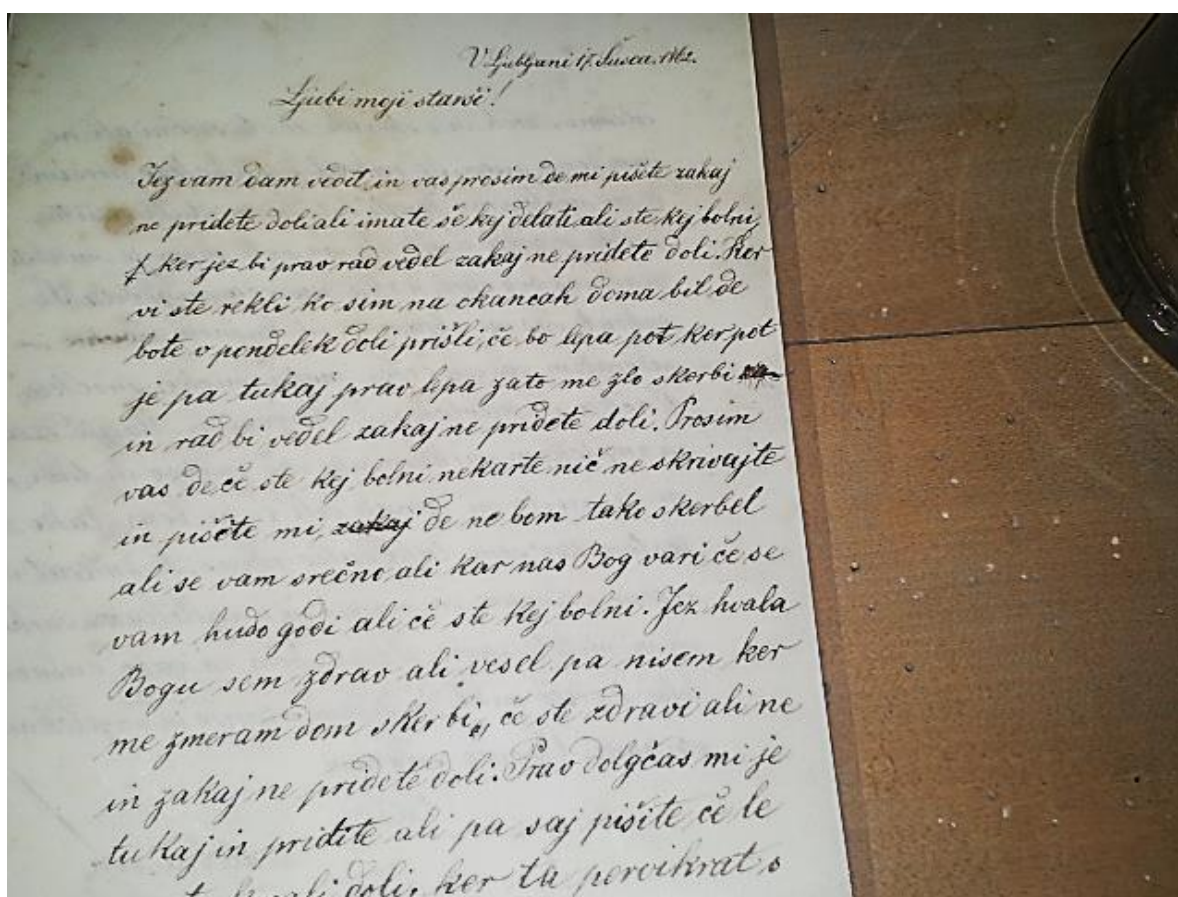 V Ljubljani 17. Sušca. 1862.
Ljubi moji starši!
Jez vam dam vedit in vas prosim de mi pišete zakaj
ne pridete doli ali imate še kej delati ali ste kej bolni,
ker jez bi prav rad vedel zakaj ne pridete doli. Ker
vi ste rekli ko sim na okancah doma bil de
bote v pondelek doli prišli, če bo lepa pot ker pot
je pa tukaj prav lepa zato me zlo skerbi
in rad bi vedel zakaj ne pridete doli. Prosim
vas de če ste kej bolni nekarte nič ne skrivajte
in pišite mi zakaj de ne bom tako skerbel
ali se vam srečno ali kar nas Bog vari če se
vam hudo godi ali če ste kej bolni. Jez hvala
Bogu sem zdrav ali vesel pa nisem ker
me zmeram dom skerbi, če ste zdravi ali ne
in zakaj ne pridete doli. Prav dolgčas mi je
tukaj in pridite ali pa saj pišite če le
ali doli, ker ta pervikrat